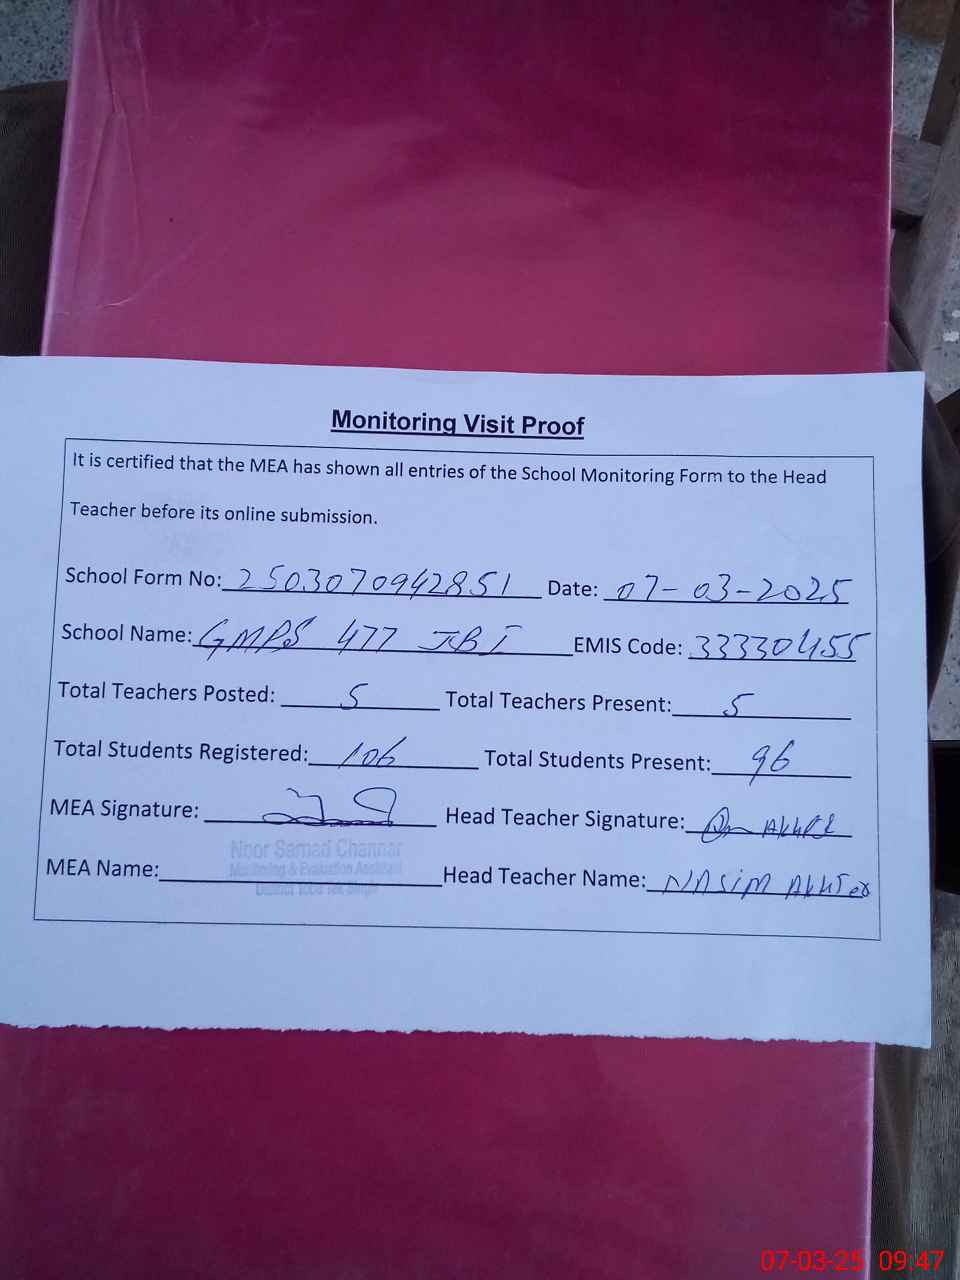 Monitoring Visit Proof
It is certified that the MEA has shown all entries of the School Monitoring Form to the Head
Teacher before its online submission.
School Form No: 2503070942851 Date: 07-03-2025
School Name: GMPS 477 JB I EMIS Code: 33330455
Total Teachers Posted: 5 Total Teachers Present: 5
Total Students Registered: 106 Total Students Present: 96
MEA Signature: Head Teacher Signature:
Noor Samad Channar
Monitoring & Evaluation Assistant
District Toba Tek Singh
MEA Name: Head Teacher Name: NASiM AkhTer
07-03-25 09:47